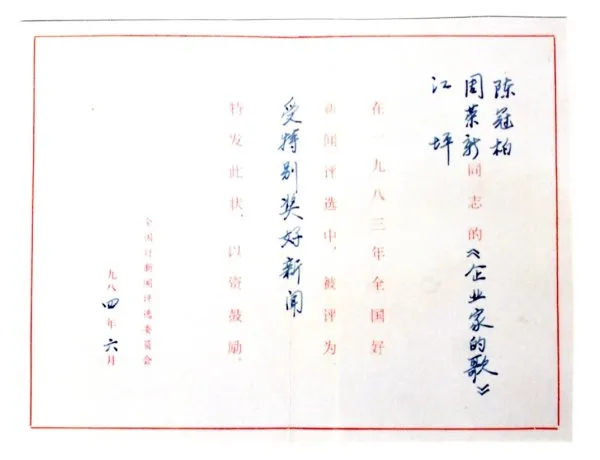 陈冠柏
周荣新同志的《企业家的歌》
江坪
在一九八三年全国好
新闻评选中，被评为
受特别奖好新闻
特发此状，以资鼓励。
全国好新闻评选委员会
九八四年六月